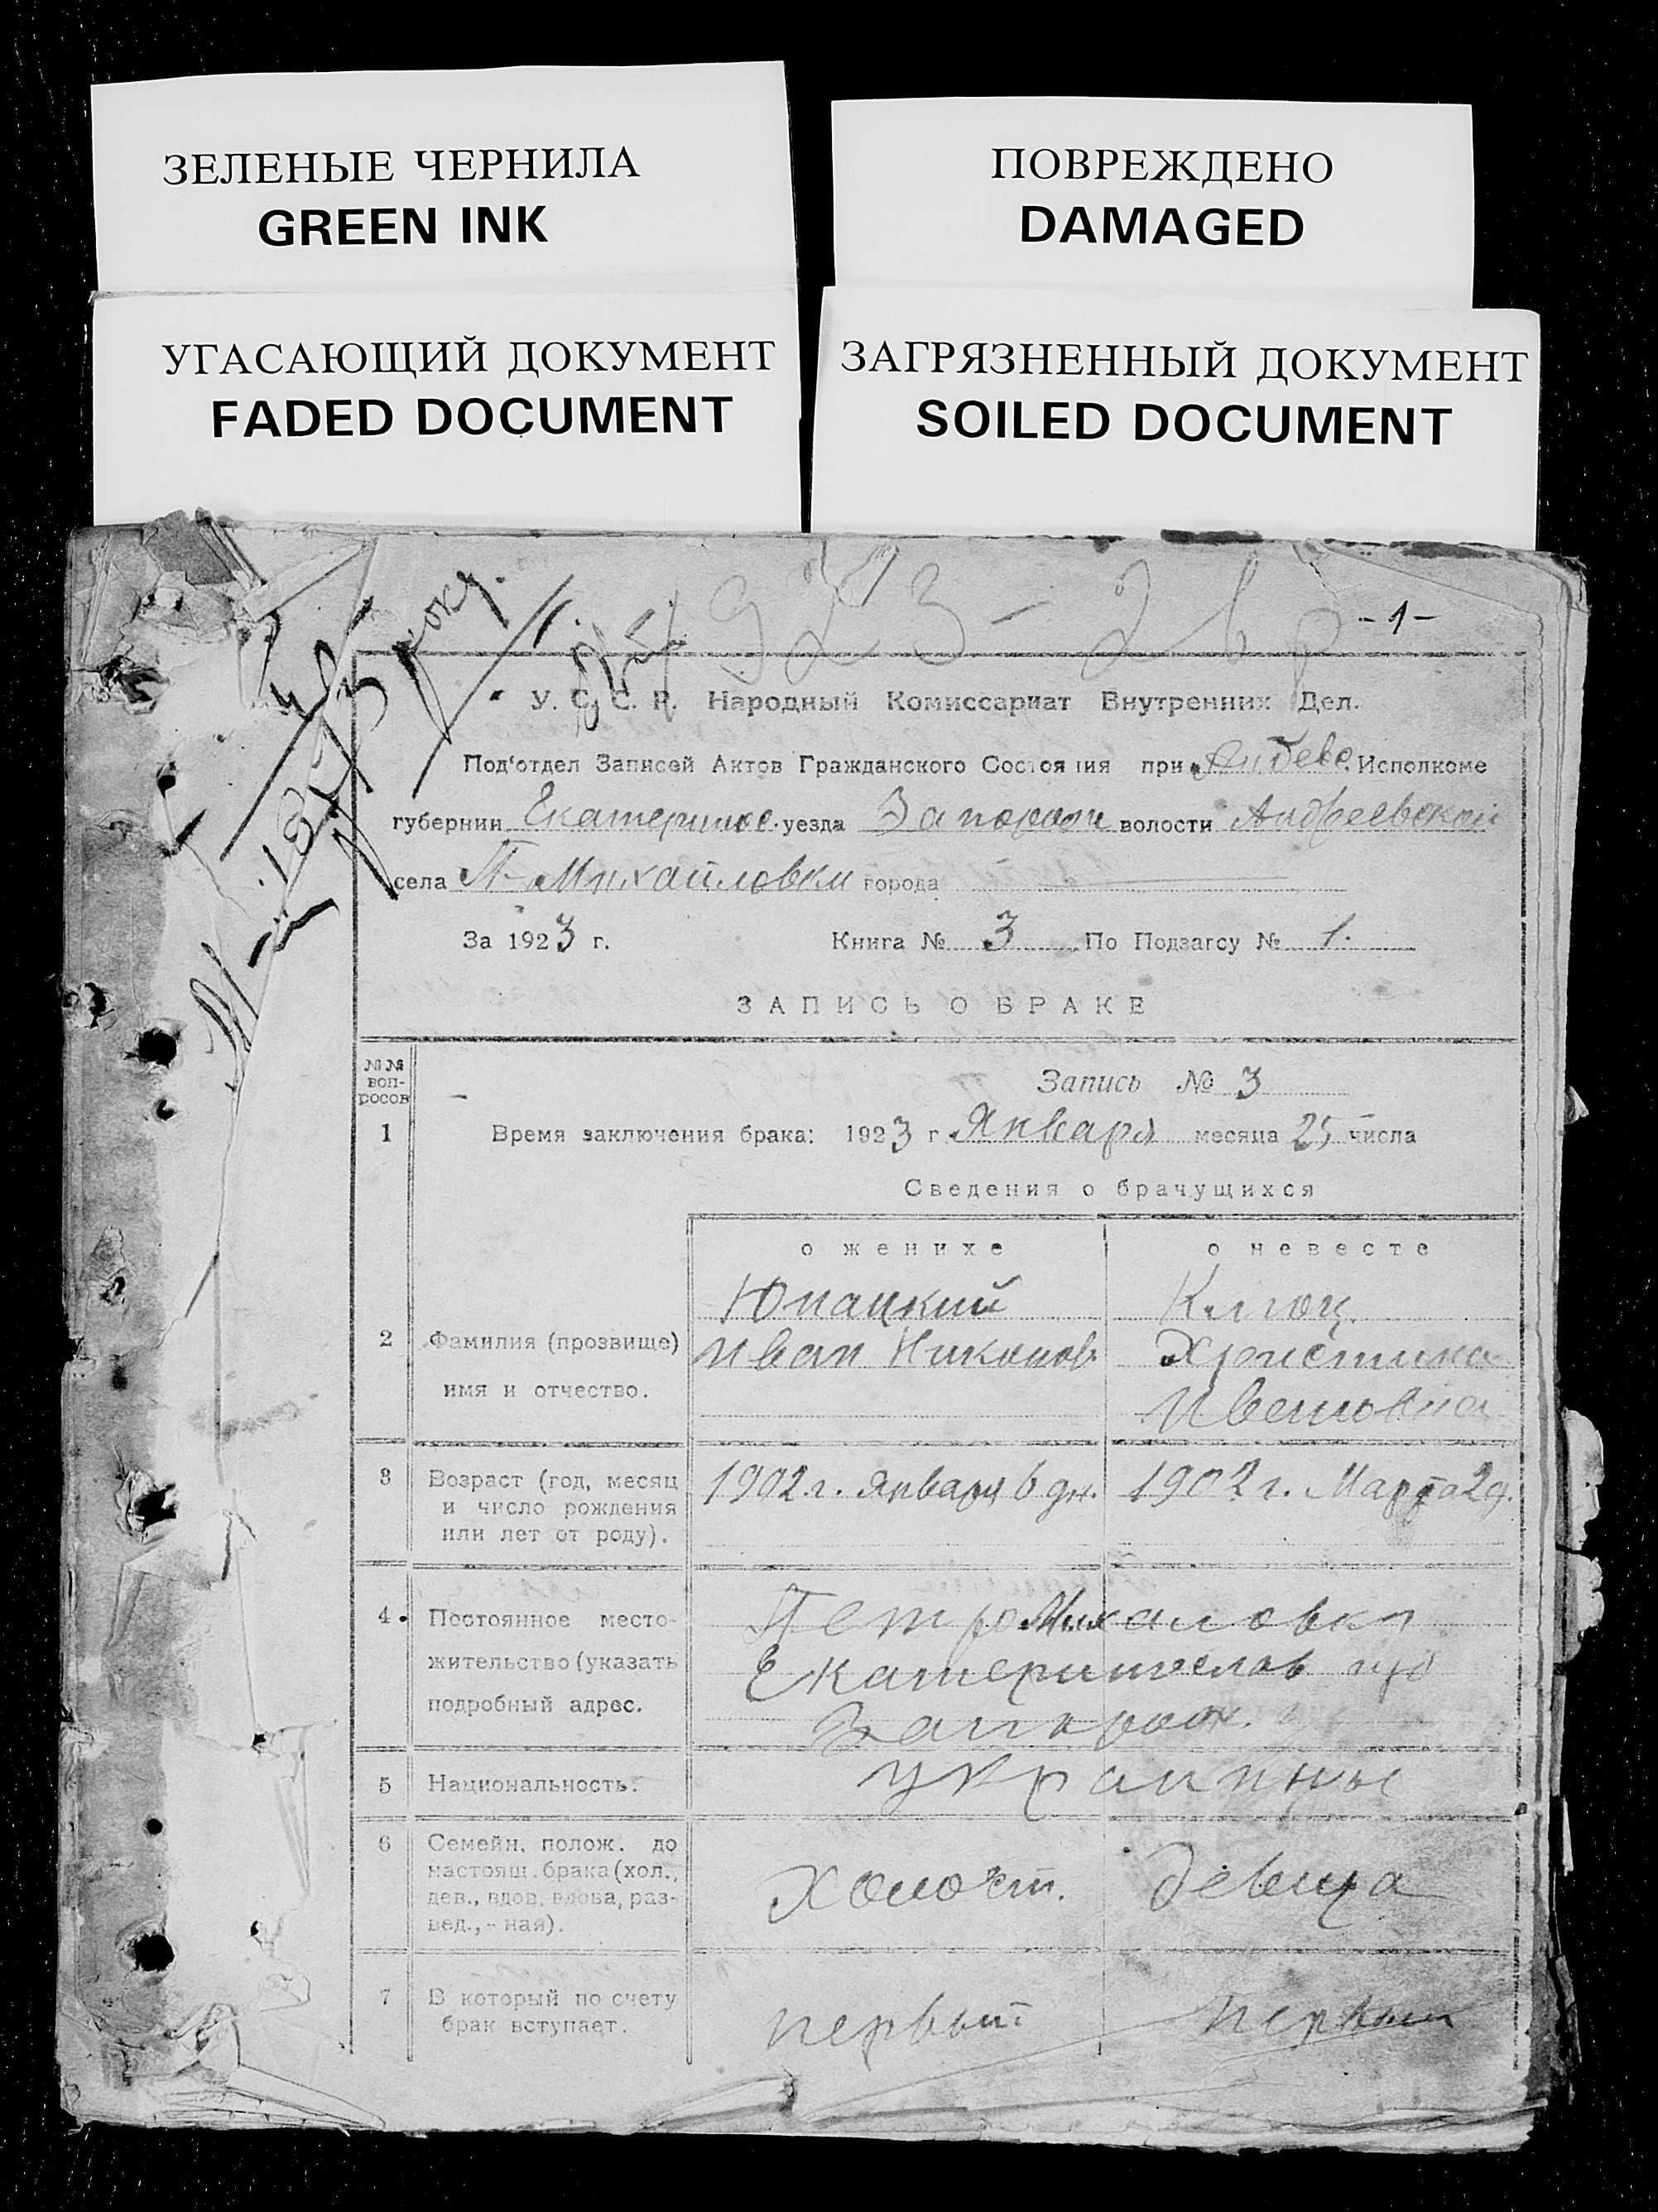 ЗЕЛЕНЫЕ ЧЕРНИЛА
GREEN INK
ПОВРЕЖДЕНО
DAMAGED
УГАСАЮЩИЙ ДОКУМЕНТ
FADED DOCUMENT
ЗАГРЯЗНЕННЫЙ ДОКУМЕНТ
SOILED DOCUMENT
1923 - 2
- 1 -
У. С. С. Р. Народный Комиссариат Внутренних Дел.
Под'отдел Записей Актов Гражданского Состояния при Исполкоме
губернии Екатеринос. уезда Запорож волости Андреевской
села П-Михайловки города
За 1923 г. Книга № 3 По Подзагсу № 1.
ЗАПИСЬ О БРАКЕ
№№ воп-
росов
Запись № 3
1 Время заключения брака: 1923 г. Января месяца 25 числа
Сведения о брачущихся
о женихе о невесте
Юпацкий Клюц
2 Фамилия (прозвище) Иван Никонов. Христина
имя и отчество. Ивановна
3 Возраст (год, месяц 1902 г. Января 6 дн. 1902 г. Марта 2 д.
и число рождения
или лет от роду).
4. Постоянное место- ПетроМихаловка
жительство (указать Екатеринослав губ
подробный адрес. Запорож.
5 Национальность. украинцы
6 Семейн. полож. до
настоящ. брака (хол., Холост. девица
дев., вдов, вдова, раз-
вед., - ная).
7 В который по счету первый первый
брак вступает.